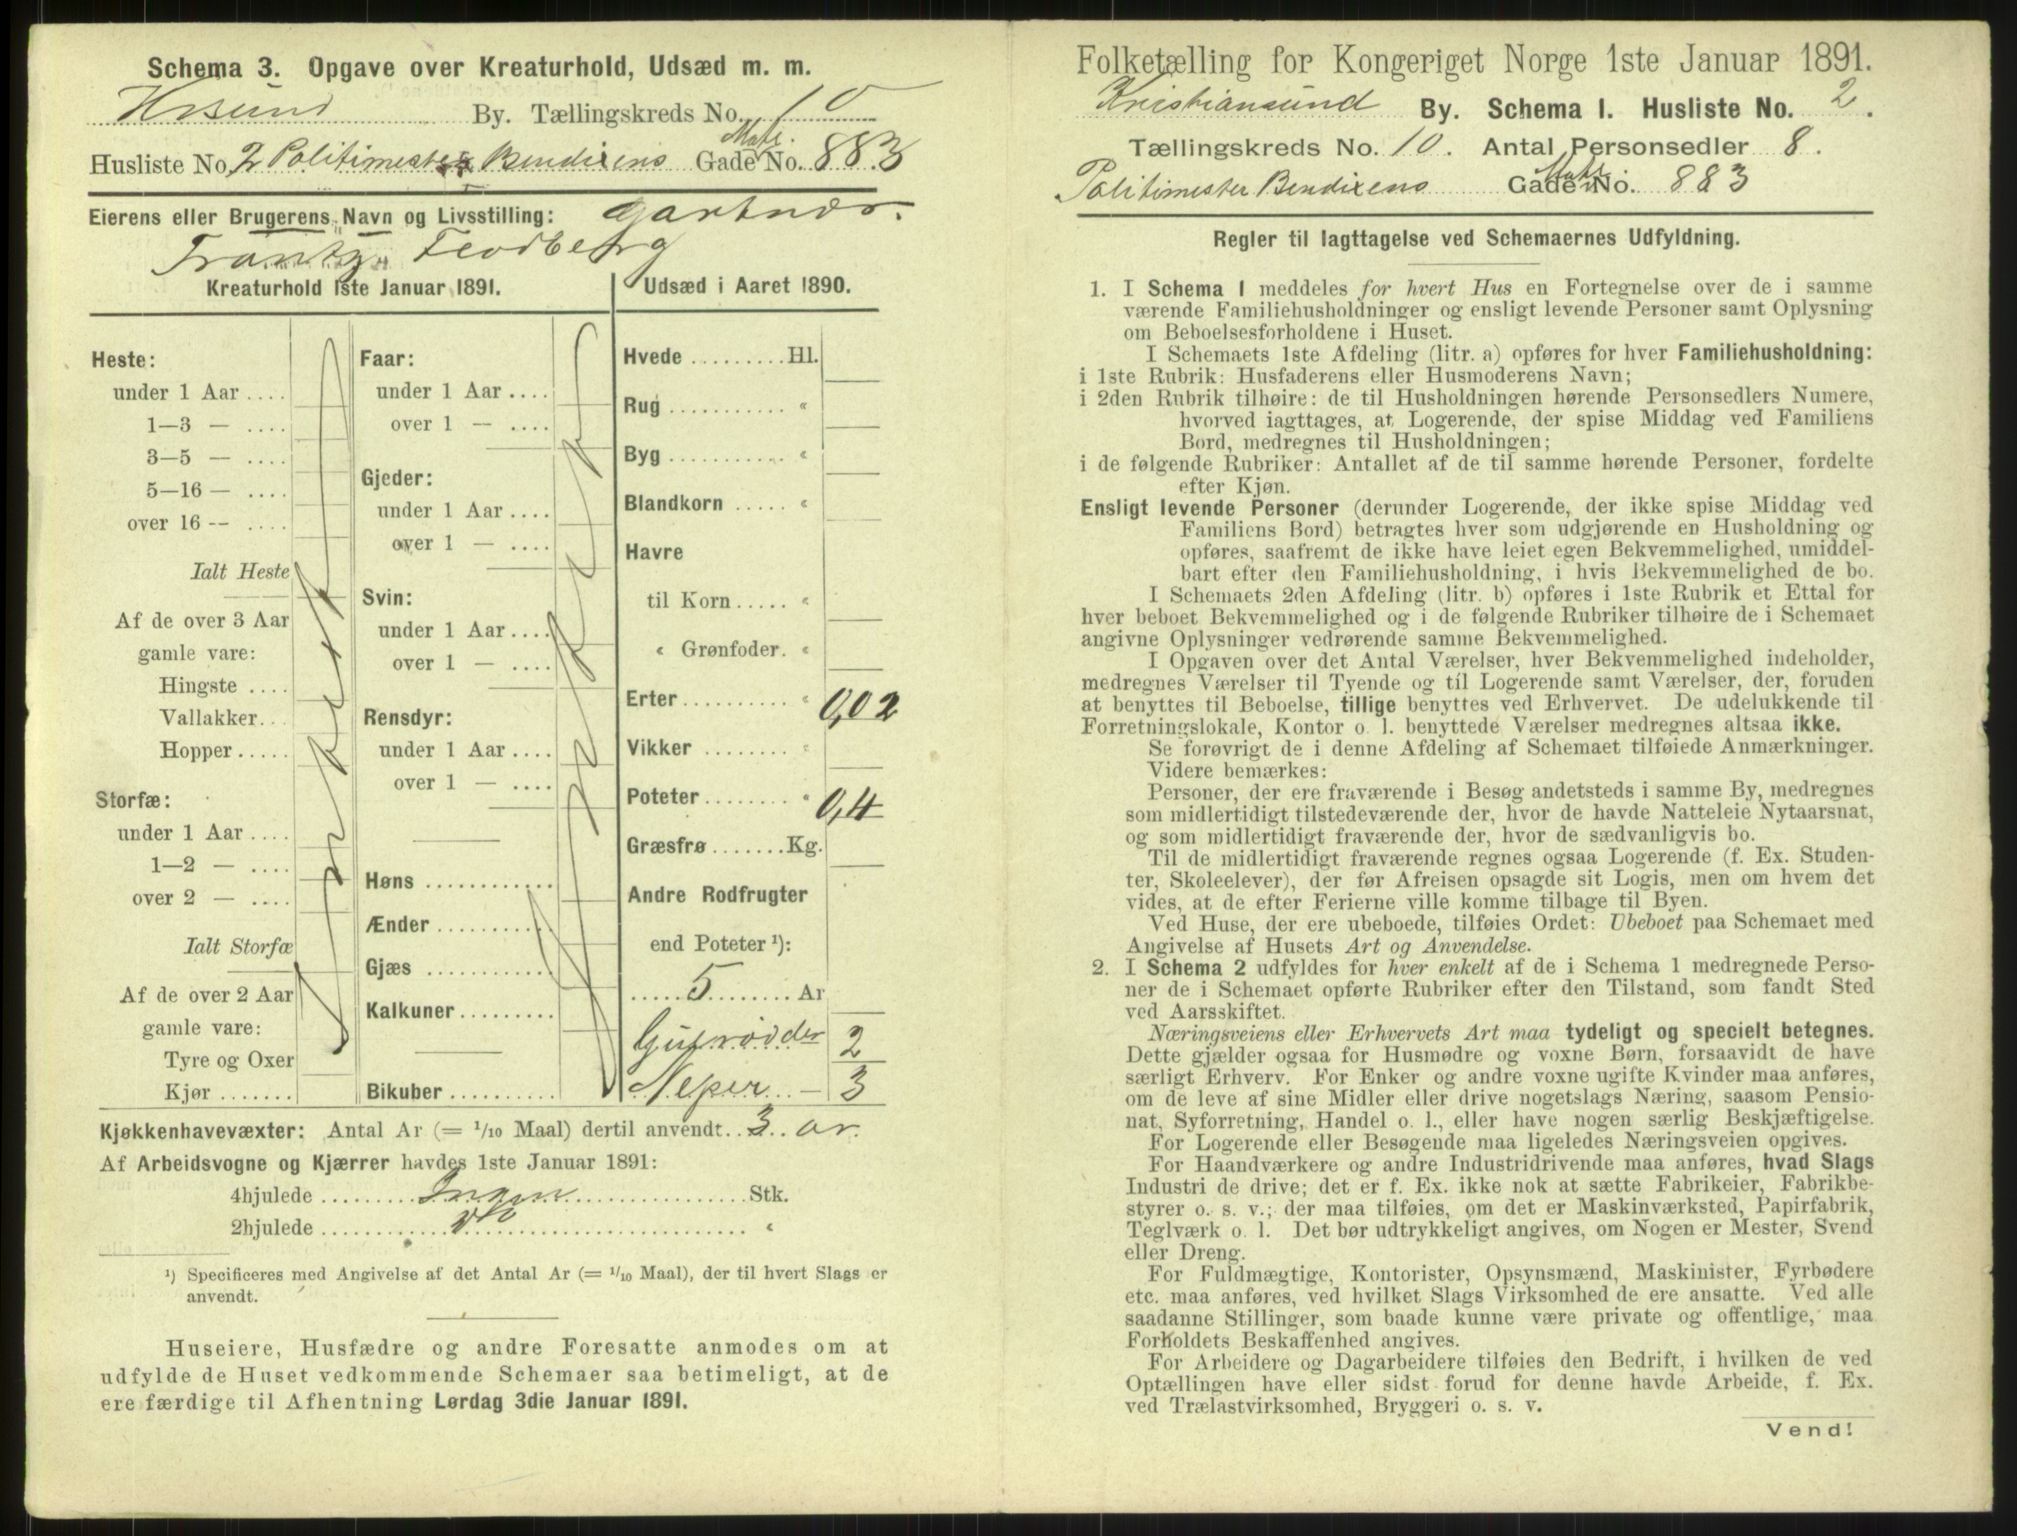 Schema 3. Opgave over Kreaturhold, Udsæd m. m.
Krsund By. Tællingskreds No. 10
Husliste No. 2 Politimester Bendixens Gade Matr. No. 883
Eierens eller Brugerens Navn og Livsstilling: Gartner.
Frantz Flodberg
Kreaturhold 1ste Januar 1891.
Heste:
under 1 Aar ....
1—3 — ....
3—5 — ....
5—16 — ....
over 16 — ....
Ialt Heste
Af de over 3 Aar
gamle vare:
Hingste ....
Vallakker....
Hopper.....
Storfæ:
under 1 Aar ....
1—2 — ....
over 2 — ....
Ialt Storfæ
Af de over 2 Aar
gamle vare:
Tyre og Oxer
Kjør .......
Faar:
under 1 Aar ....
over 1 — ....
Gjeder:
under 1 Aar ....
over 1 — ....
Svin:
under 1 Aar....
over 1 — ....
Rensdyr:
under 1 Aar ....
over 1 — ....
Høns ............
Ænder ...........
Gjæs ............
Kalkuner.........
Bikuber ..........
Udsæd i Aaret 1890.
Hvede .........Hl.
Rug ........... "
Byg ........... "
Blandkorn ..... "
Havre
til Korn ..... "
" Grønfoder. "
Erter .......... " 0,02
Vikker ........ "
Poteter........ " 0,4
Græsfrø .......Kg.
Andre Rodfrugter
end Poteter ¹):
.....5........Ar
Gulerødder 2
Neper — 3
Kjøkkenhavevæxter: Antal Ar (= 1/10 Maal) dertil anvendt..3..ar.
Af Arbeidsvogne og Kjærrer havdes 1ste Januar 1891:
4hjulede ......... Ingen ................Stk.
2hjulede ............ do ...................... "
¹) Specificeres med Angivelse af det Antal Ar (= 1/10 Maal), der til hvert Slags er
anvendt.
Huseiere, Husfædre og andre Foresatte anmodes om at
udfylde de Huset vedkommende Schemaer saa betimeligt, at de
ere færdige til Afhentning Lørdag 3die Januar 1891.
Folketælling for Kongeriget Norge 1ste Januar 1891.
Kristiansund By. Schema I. Husliste No. 2.
Tællingskreds No. 10. Antal Personsedler 8.
Politimester Bendixens Gade Matr No. 883
Regler til Iagttagelse ved Schemaernes Udfyldning.
1. I Schema I meddeles for hvert Hus en Fortegnelse over de i samme
værende Familiehusholdninger og ensligt levende Personer samt Oplysning
om Beboelsesforholdene i Huset.
I Schemaets 1ste Afdeling (litr. a) opføres for hver Familiehusholdning:
i 1ste Rubrik: Husfaderens eller Husmoderens Navn;
i 2den Rubrik tilhøire: de til Husholdningen hørende Personsedlers Numere,
hvorved iagttages, at Logerende, der spise Middag ved Familiens
Bord, medregnes til Husholdningen;
i de følgende Rubriker: Antallet af de til samme hørende Personer, fordelte
efter Kjøn.
Ensligt levende Personer (derunder Logerende, der ikke spise Middag ved
Familiens Bord) betragtes hver som udgjørende en Husholdning og
opføres, saafremt de ikke have leiet egen Bekvemmelighed, umiddel-
bart efter den Familiehusholdning, i hvis Bekvemmelighed de bo.
I Schemaets 2den Afdeling (litr. b) opføres i 1ste Rubrik et Ettal for
hver beboet Bekvemmelighed og i de følgende Rubriker tilhøire de i Schemaet
angivne Oplysninger vedrørende samme Bekvemmelighed.
I Opgaven over det Antal Værelser, hver Bekvemmelighed indeholder,
medregnes Værelser til Tyende og til Logerende samt Værelser, der, foruden
at benyttes til Beboelse, tillige benyttes ved Erhvervet. De udelukkende til
Forretningslokale, Kontor o. l. benyttede Værelser medregnes altsaa ikke.
Se forøvrigt de i denne Afdeling af Schemaet tilføiede Anmærkninger.
Videre bemærkes:
Personer, der ere fraværende i Besøg andetsteds i samme By, medregnes
som midlertidigt tilstedeværende der, hvor de havde Natteleie Nytaarsnat,
og som midlertidigt fraværende der, hvor de sædvanligvis bo.
Til de midlertidigt fraværende regnes ogsaa Logerende (f. Ex. Studen-
ter, Skoleelever), der før Afreisen opsagde sit Logis, men om hvem det
vides, at de efter Ferierne ville komme tilbage til Byen.
Ved Huse, der ere ubeboede, tilføies Ordet: Ubeboet paa Schemaet med
Angivelse af Husets Art og Anvendelse.
2. I Schema 2 udfyldes for hver enkelt af de i Schema 1 medregnede Perso-
ner de i Schemaet opførte Rubriker efter den Tilstand, som fandt Sted
ved Aarsskiftet.
Næringsveiens eller Erhvervets Art maa tydeligt og specielt betegnes.
Dette gjælder ogsaa for Husmødre og voxne Børn, forsaavidt de have
særligt Erhverv. For Enker og andre voxne ugifte Kvinder maa anføres,
om de leve af sine Midler eller drive nogetslags Næring, saasom Pensio-
nat, Syforretning, Handel o. l., eller have nogen særlig Beskjæftigelse.
For Logerende eller Besøgende maa ligeledes Næringsveien opgives.
For Haandværkere og andre Industridrivende maa anføres, hvad Slags
Industri de drive; det er f. Ex. ikke nok at sætte Fabrikeier, Fabrikbe-
styrer o. s. v.; der maa tilføies, om det er Maskinværksted, Papirfabrik,
Teglværk o. l. Det bør udtrykkeligt angives, om Nogen er Mester, Svend
eller Dreng.
For Fuldmægtige, Kontorister, Opsynsmænd, Maskinister, Fyrbødere
etc. maa anføres, ved hvilket Slags Virksomhed de ere ansatte. Ved alle
saadanne Stillinger, som baade kunne være private og offentlige, maa
Forholdets Beskaffenhed angives.
For Arbeidere og Dagarbeidere tilføies den Bedrift, i hvilken de ved
Optællingen have eller sidst forud for denne havde Arbeide, f. Ex.
ved Trælastvirksomhed, Bryggeri o. s. v.
Vend!